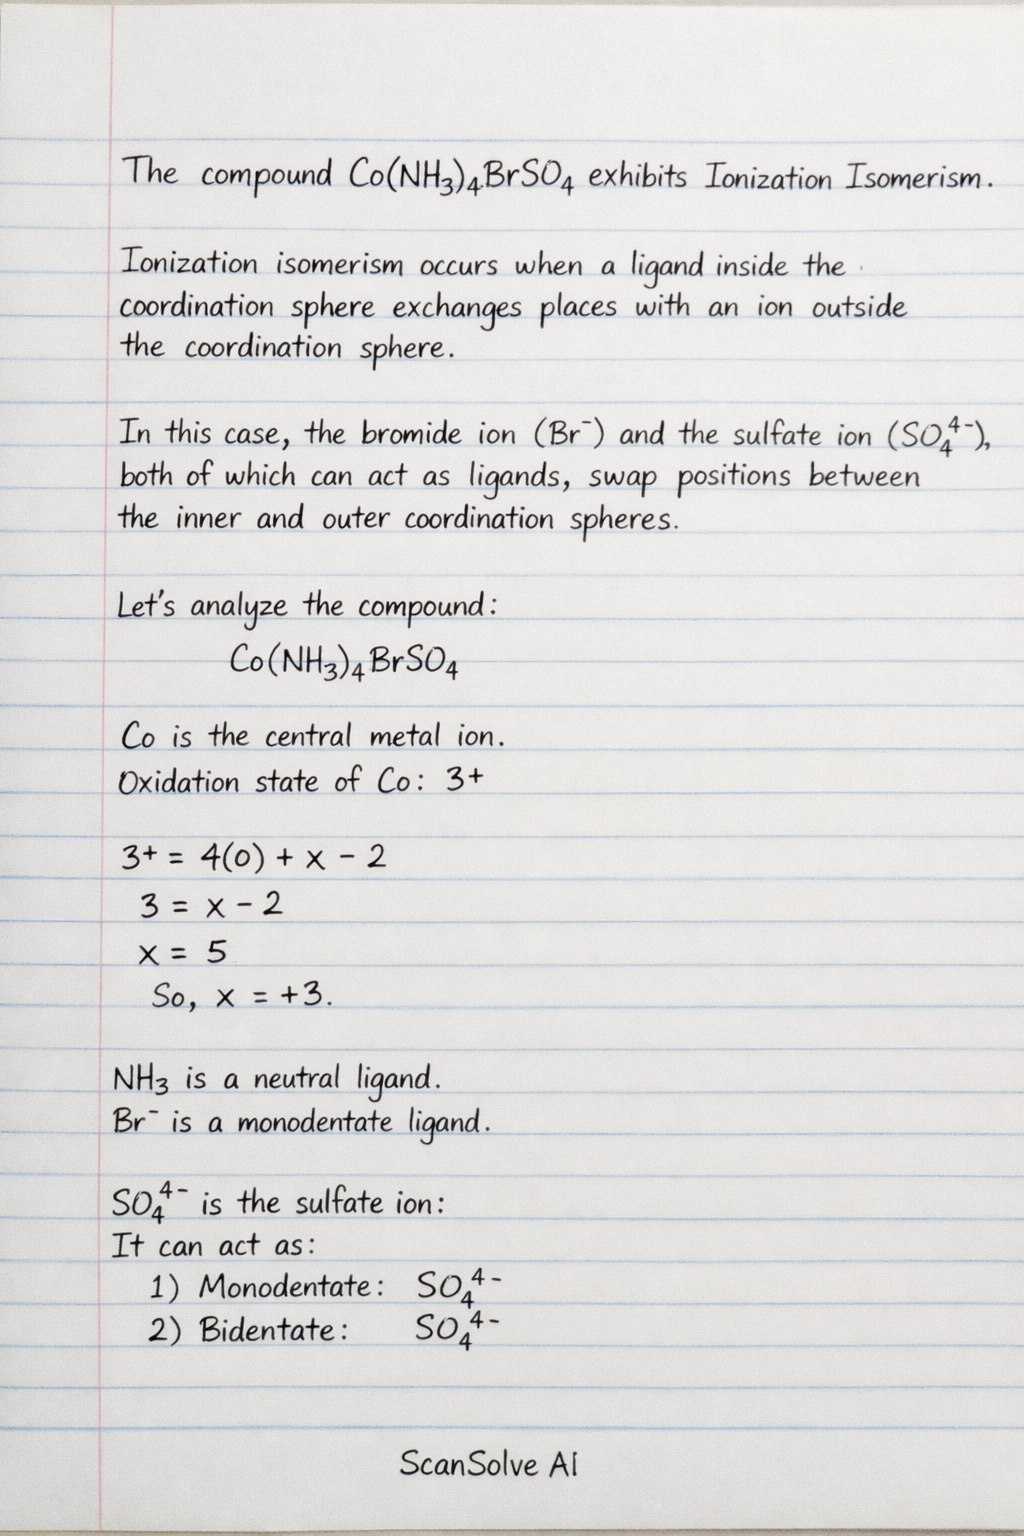 The compound Co(NH₃)₄BrSO₄ exhibits Ionization Isomerism.
Ionization isomerism occurs when a ligand inside the
coordination sphere exchanges places with an ion outside
the coordination sphere.
In this case, the bromide ion (Br⁻) and the sulfate ion (SO₄⁴⁻),
both of which can act as ligands, swap positions between
the inner and outer coordination spheres.
Let's analyze the compound:
Co(NH₃)₄BrSO₄
Co is the central metal ion.
Oxidation state of Co: 3+
3+ = 4(0) + x - 2
3 = x - 2
x = 5
So, x = +3.
NH₃ is a neutral ligand.
Br⁻ is a monodentate ligand.
SO₄⁴⁻ is the sulfate ion:
It can act as:
1) Monodentate: SO₄⁴⁻
2) Bidentate: SO₄⁴⁻
ScanSolve AI